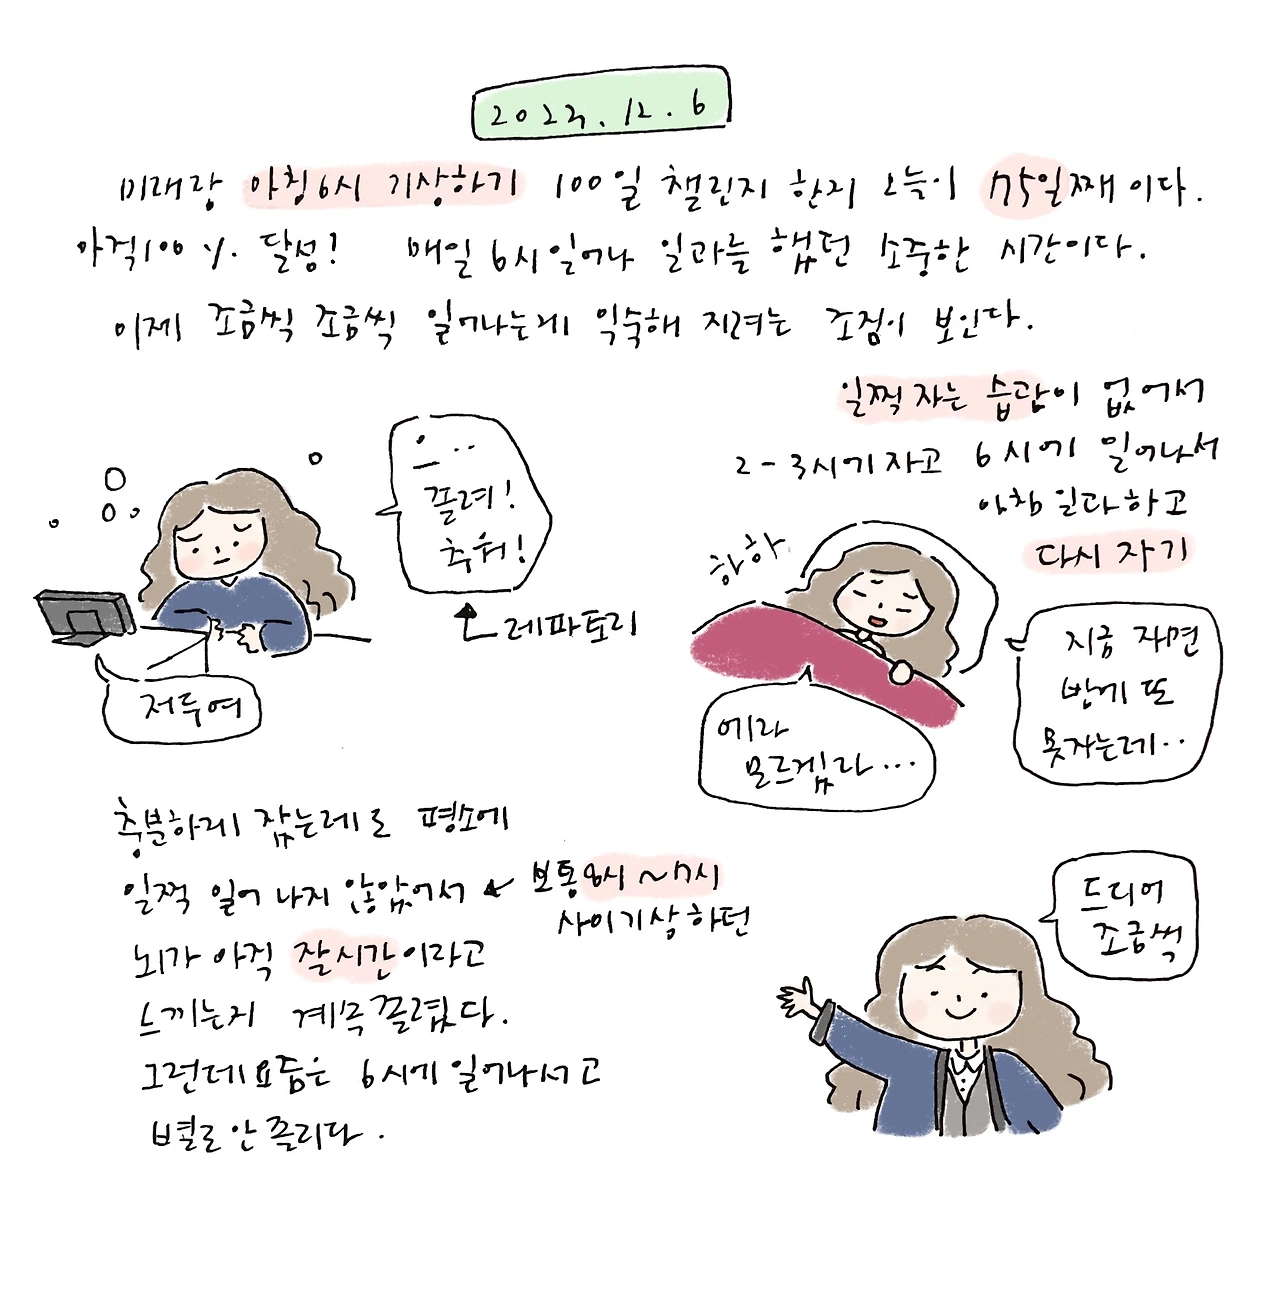 2022.12.6
미래랑 아침6시 기상하기 100일 챌린지 한지 오늘이 75일째이다.
아직100%. 달성! 매일 6시일어나 일과를 했던 소중한 시간이다.
이제 조금씩 조금씩 일어나는데 익숙해 지려는 조짐이 보인다.
일찍자는 습관이 없어서
2-3시에자고 6시에 일어나서
아침일과하고
다시 자기
으...
졸려!
추워!
레파토리
저두여
하하
지금 자면
밤에 또
못자는데..
에라
모르겠다...
충분하게 잤는데도 평소에
일찍 일어 나지 않았어서
보통8시~7시
사이기상하던
뇌가 아직 잘시간이라고
느끼는지 계속졸렸다.
그런데요즘은 6시에일어나서고
별로안졸리다.
드디어
조금씩